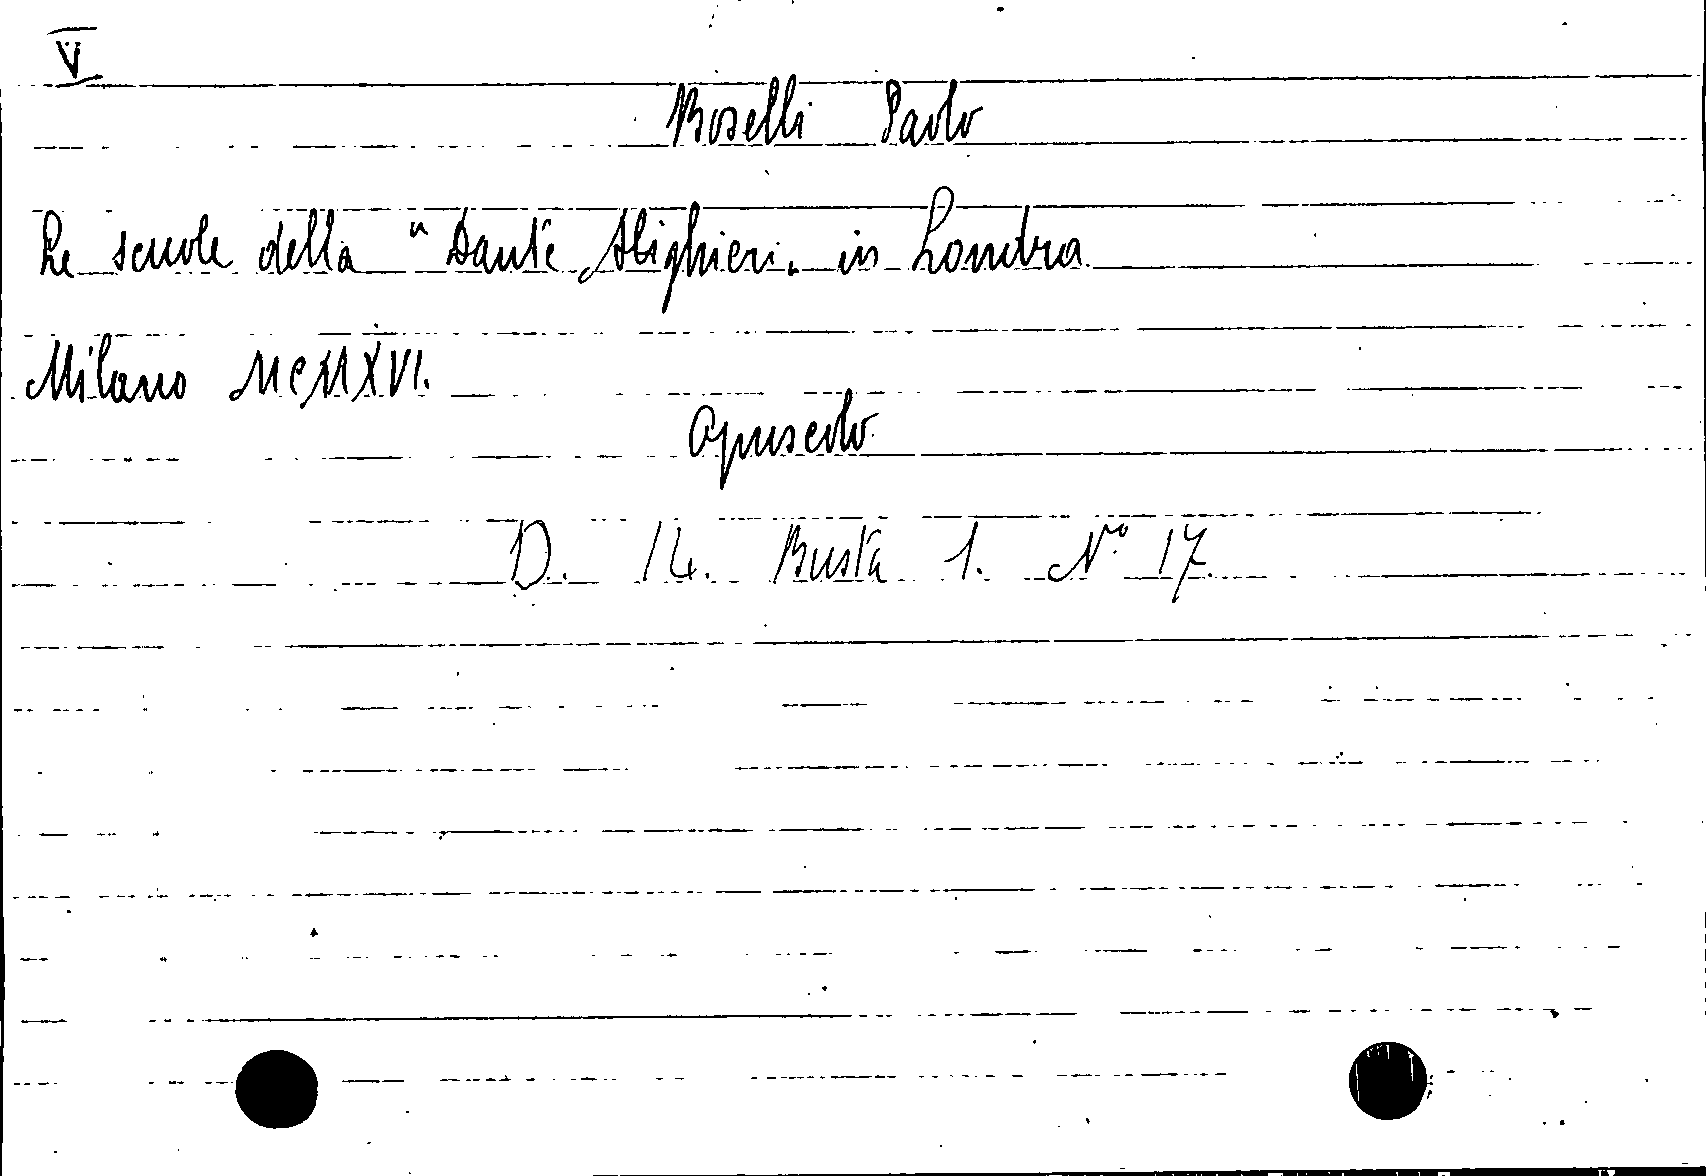 V
Boselli Paolo
Le scuole della "Dante Alighieri" in Londra
Milano MCMXVI.
Opuscolo
D. 14. Busta 1. N.º 17.